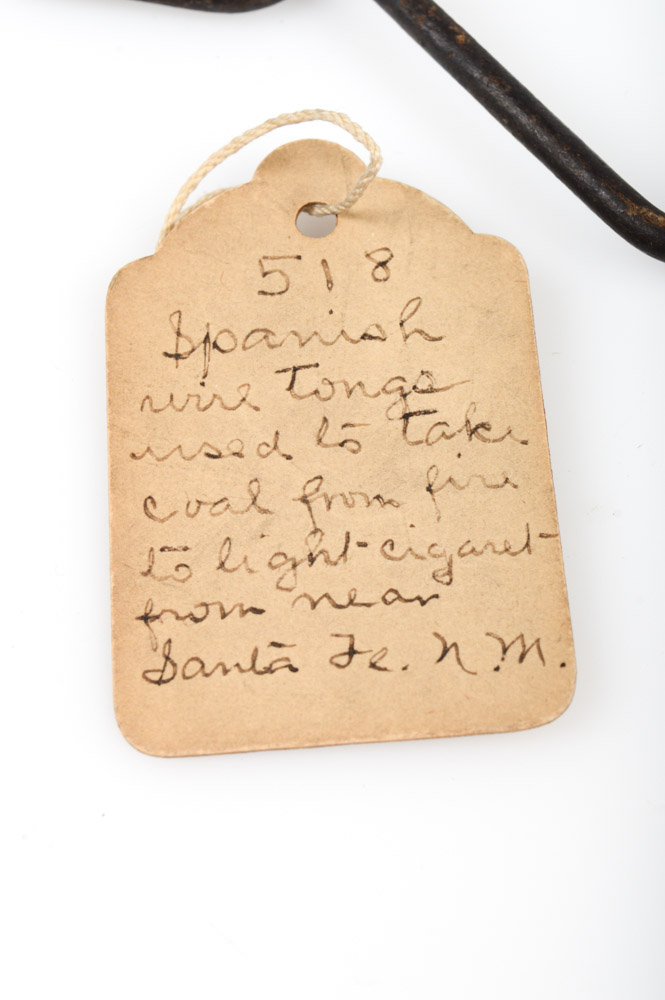 518
Spanish
wire Tongs
used to take
coal from fire
to light cigaret
from near
Santa Fe. N.M.